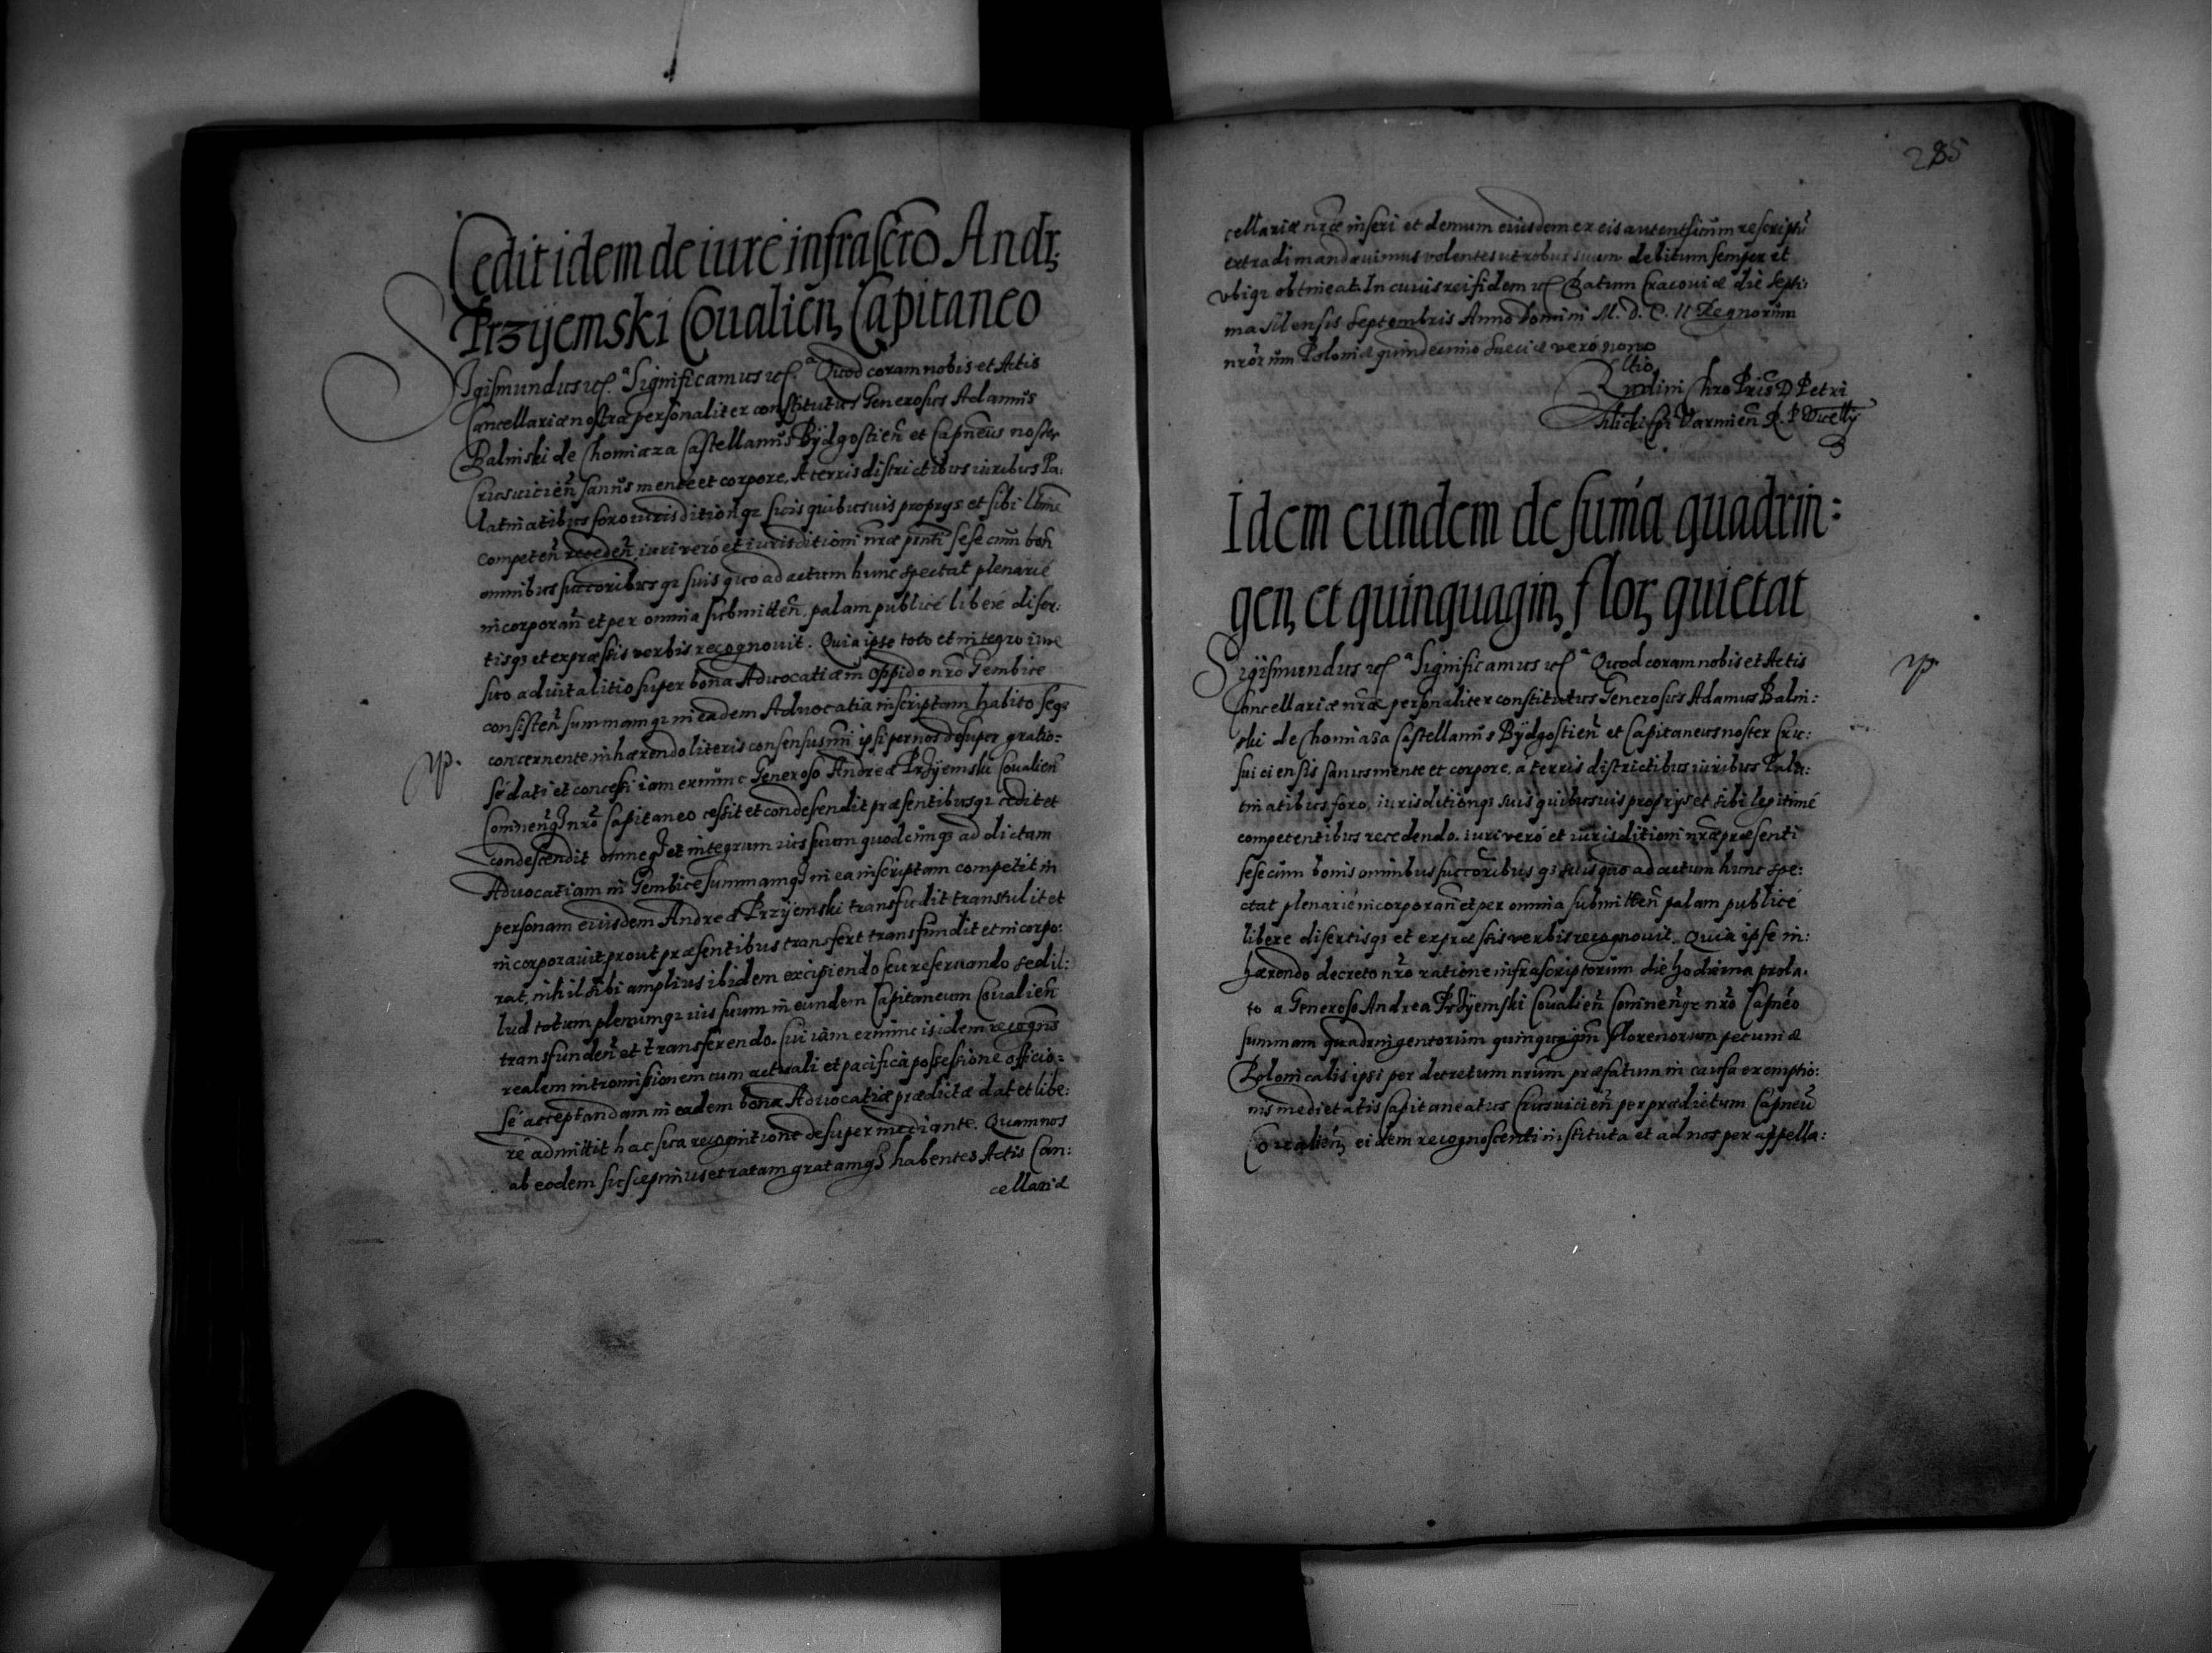 Cedit idem de iure infrascro Andr,
Przÿemski Coualien, Capitaneo
Sigismundus etc. Significamus etc. Quod coram nobis et Actis
Cancellariæ nostræ personaliter constitutus Generosus Adamus
Balinski de Chomiaza Castellanus Bÿdgostien et Capneus noster
Crusuicien sanus mente et corpore, A terris districtibus iuribus Pa:
latinatibus foro iurisditionq; suis quibusuis proprys et sibi ltime
competen receden iuri vero et iurisditioni nræ pnti sese cum bon
omnibus succoribusq; suis quo ad actum hunc spectat plenarié
incorporan et per omnia submitten, palam publicé liberé diser:
tisq; et expressis verbis recognouit. Quia ipse toto et integro iure
suo aduitalitio super bona Aduocatiæ in oppido nro Gembice
consisten summamq; in eadem Aduocatia inscriptam habito seq;
concernente inhærendo literis consensus nri ipsi per nos desuper gratio:
sé dati et concessi iam exnunc Generoso Andreæ Przÿemski Coualien
Cominenq; nro Capitaneo cessit et condescendit præsentibusq; cedit et
condescendit omneq; et integrum ius suum quodcunq; ad dictam
Aduocatiam in Gembice summamq; in ea inscriptam competit in
personam eiusdem Andreæ Przÿemski transfudit transtulit et
incorporauit, prout præsentibus transfert transfundit et incorpo:
rat, nihil sibi amplius ibidem excipiendo seu reseruando sed il:
lud totum plenumq; ius suum in eundem Capitaneum Coualien
transfunden et transferendo. Cui iam exnunc is idem recogns
realem intromissionem cum actuali et pacifica possessione officio:
sé acceptandam in eadem bona Aduocatiæ prædictæ dat et libe:
ré admittit hac sua recognitione desuper mediante. Quam nos
ab eodem suscepimus et ratam gratamq; habentes Actis Can:
cellariæ
285
cellariæ nræ inseri et demum eiusdem ex eis autentticum rescriptu
extradi mandauimus volentes ut robur suum debitum semper et
vbiq; obtineat. In cuius rei fidem etc Datum Cracouiæ die septi:
ma Mensis Septembris Anno Domini M. D. C. II Regnorum
nrorum Poloniæ quindecimo Sueciæ vero nono
Idem eundem de suma quadrin:
gen, et quinquagin, flor, quietat
Sigismundus etc Significamus etc Quod coram nobis et Actis
Cancellariæ nræ personaliter constitutus Generosus Adamus Balin:
ski de Chomiaza Castellanus Bÿdgostien et Capitaneus noster Cru:
suiciensis sanus mente et corpore, a terris districtibus iuribus Pala:
tinatibus foro, iurisditionq; suis quibusuis proprijs et sibi legitimé
competentibus recedendo. iuri veró et iurisditioni nræ præsenti
sese cum bonis omnibus succoribusq; suis quo ad actum hunc spe:
ctat plenarié incorporan et per omnia submitten palam publicé
libere disertisq; et expræssis verbis recognouit. Quia ipse in:
hærendo decreto nro ratione infrascriptorum die hodierna prola:
to a Generoso Andrea Przÿemski Coualien Cominenq; nro Capneo
summam quadringentorum quinquagin florenorum pecuniæ
Polonicalis ipsi per decretum nrum præfatum in causa exemptio:
nis medietatis Capitaneatus Crusuicien per prædictum Capneu
Coualien, eidem recognoscenti instituta et ad nos per appella: